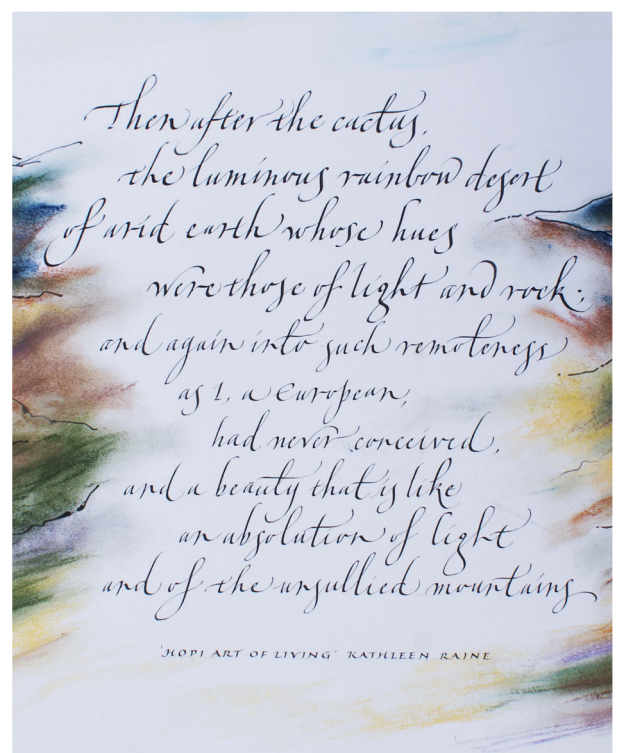 Then after the cactus,
the luminous rainbow desert
of arid earth whose hues
were those of light and rock;
and again into such remoteness
as I, a European,
had never conceived,
and a beauty that is like
an absolution of light
and of the unsullied mountains
'HOPI ART OF LIVING' KATHLEEN RAINE